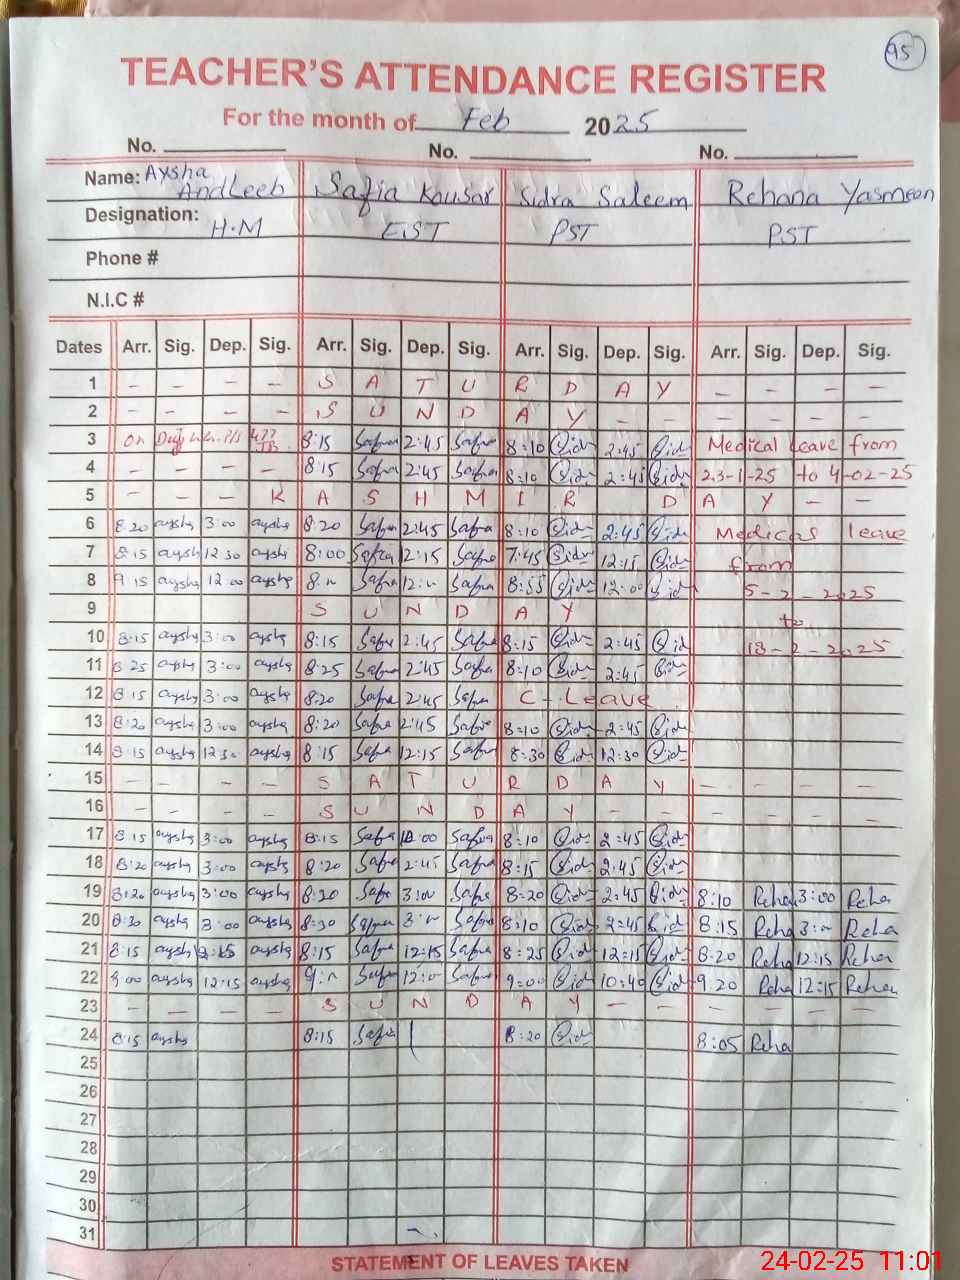 95
TEACHER'S ATTENDANCE REGISTER
For the month of Feb 2025
No. No. No.
Name: Aysha Andleeb Safia Kousar Sidra Saleem Rehana Yasmeen
Designation: H.M EST PST PST
Phone #
N.I.C #
Dates Arr. Sig. Dep. Sig. Arr. Sig. Dep. Sig. Arr. Sig. Dep. Sig. Arr. Sig. Dep. Sig.
1 - - - - S A T U R D A Y - - - -
2 - - - - S U N D A Y - - - - - -
3 On Duty 8:15 Safia 2:45 Safia 8:10 Sid 2:45 Sid Medical leave from
4 - - - - 8:15 Safia 2:45 Safia 8:10 Sid 2:45 Sid 23-1-25 to 4-02-25
5 - - - K A S H M I R D A Y - -
6 8:20 aysha 3:00 aysha 8:20 Safia 2:45 Safia 8:10 Sid 2:45 Sid Medical leave
7 8:15 aysha 12:30 aysha 8:00 Safia 12:15 Safia 7:45 Sid 12:15 Sid from
8 9:15 aysha 12:00 aysha Safia Safia 8:55 Sid 12:00 Sid 5-2-2025
9 S U N D A Y to
10 8:15 aysha 3:00 aysha 8:15 Safia 2:45 Safia 8:15 Sid 2:45 Sid 18-2-2025
11 8:25 aysha 3:00 aysha 8:25 Safia 2:45 Safia 8:10 Sid 2:45 Sid
12 8:15 aysha 3:00 aysha 8:20 Safia 2:45 Safia C-Leave
13 8:20 aysha 3:00 aysha 8:20 Safia 2:45 Safia 8:10 Sid 2:45 Sid
14 8:15 aysha 12:30 aysha 8:15 Safia 12:15 Safia 8:30 Sid 12:30 Sid
15 - - - - S A T U R D A Y - - - -
16 - - - - S U N D A Y - - - - - -
17 8:15 aysha 3:00 aysha 8:15 Safia Safia 8:10 Sid 2:45 Sid
18 8:20 aysha 3:00 aysha 8:20 Safia 2:45 Safia 8:15 Sid 2:45 Sid
19 8:20 aysha 3:00 aysha 8:20 Safia 3:00 Safia 8:20 Sid 2:45 Sid 8:10 Reha 3:00 Reha
20 8:30 aysha 3:00 aysha 8:30 Safia Safia 8:10 Sid 2:45 Sid 8:15 Reha Reha
21 8:15 aysha aysha 8:15 Safia 12:15 Safia 8:25 Sid 12:15 Sid 8:20 Reha 12:15 Reha
22 9:00 aysha 12:15 aysha Safia Safia 9:00 Sid 10:40 Sid 9:20 Reha 12:15 Reha
23 - - - - S U N D A Y - - - - - -
24 8:15 aysha 8:15 Safia 8:20 Sid 8:05 Reha
25
26
27
28
29
30
31
STATEMENT OF LEAVES TAKEN
24-02-25 11:01